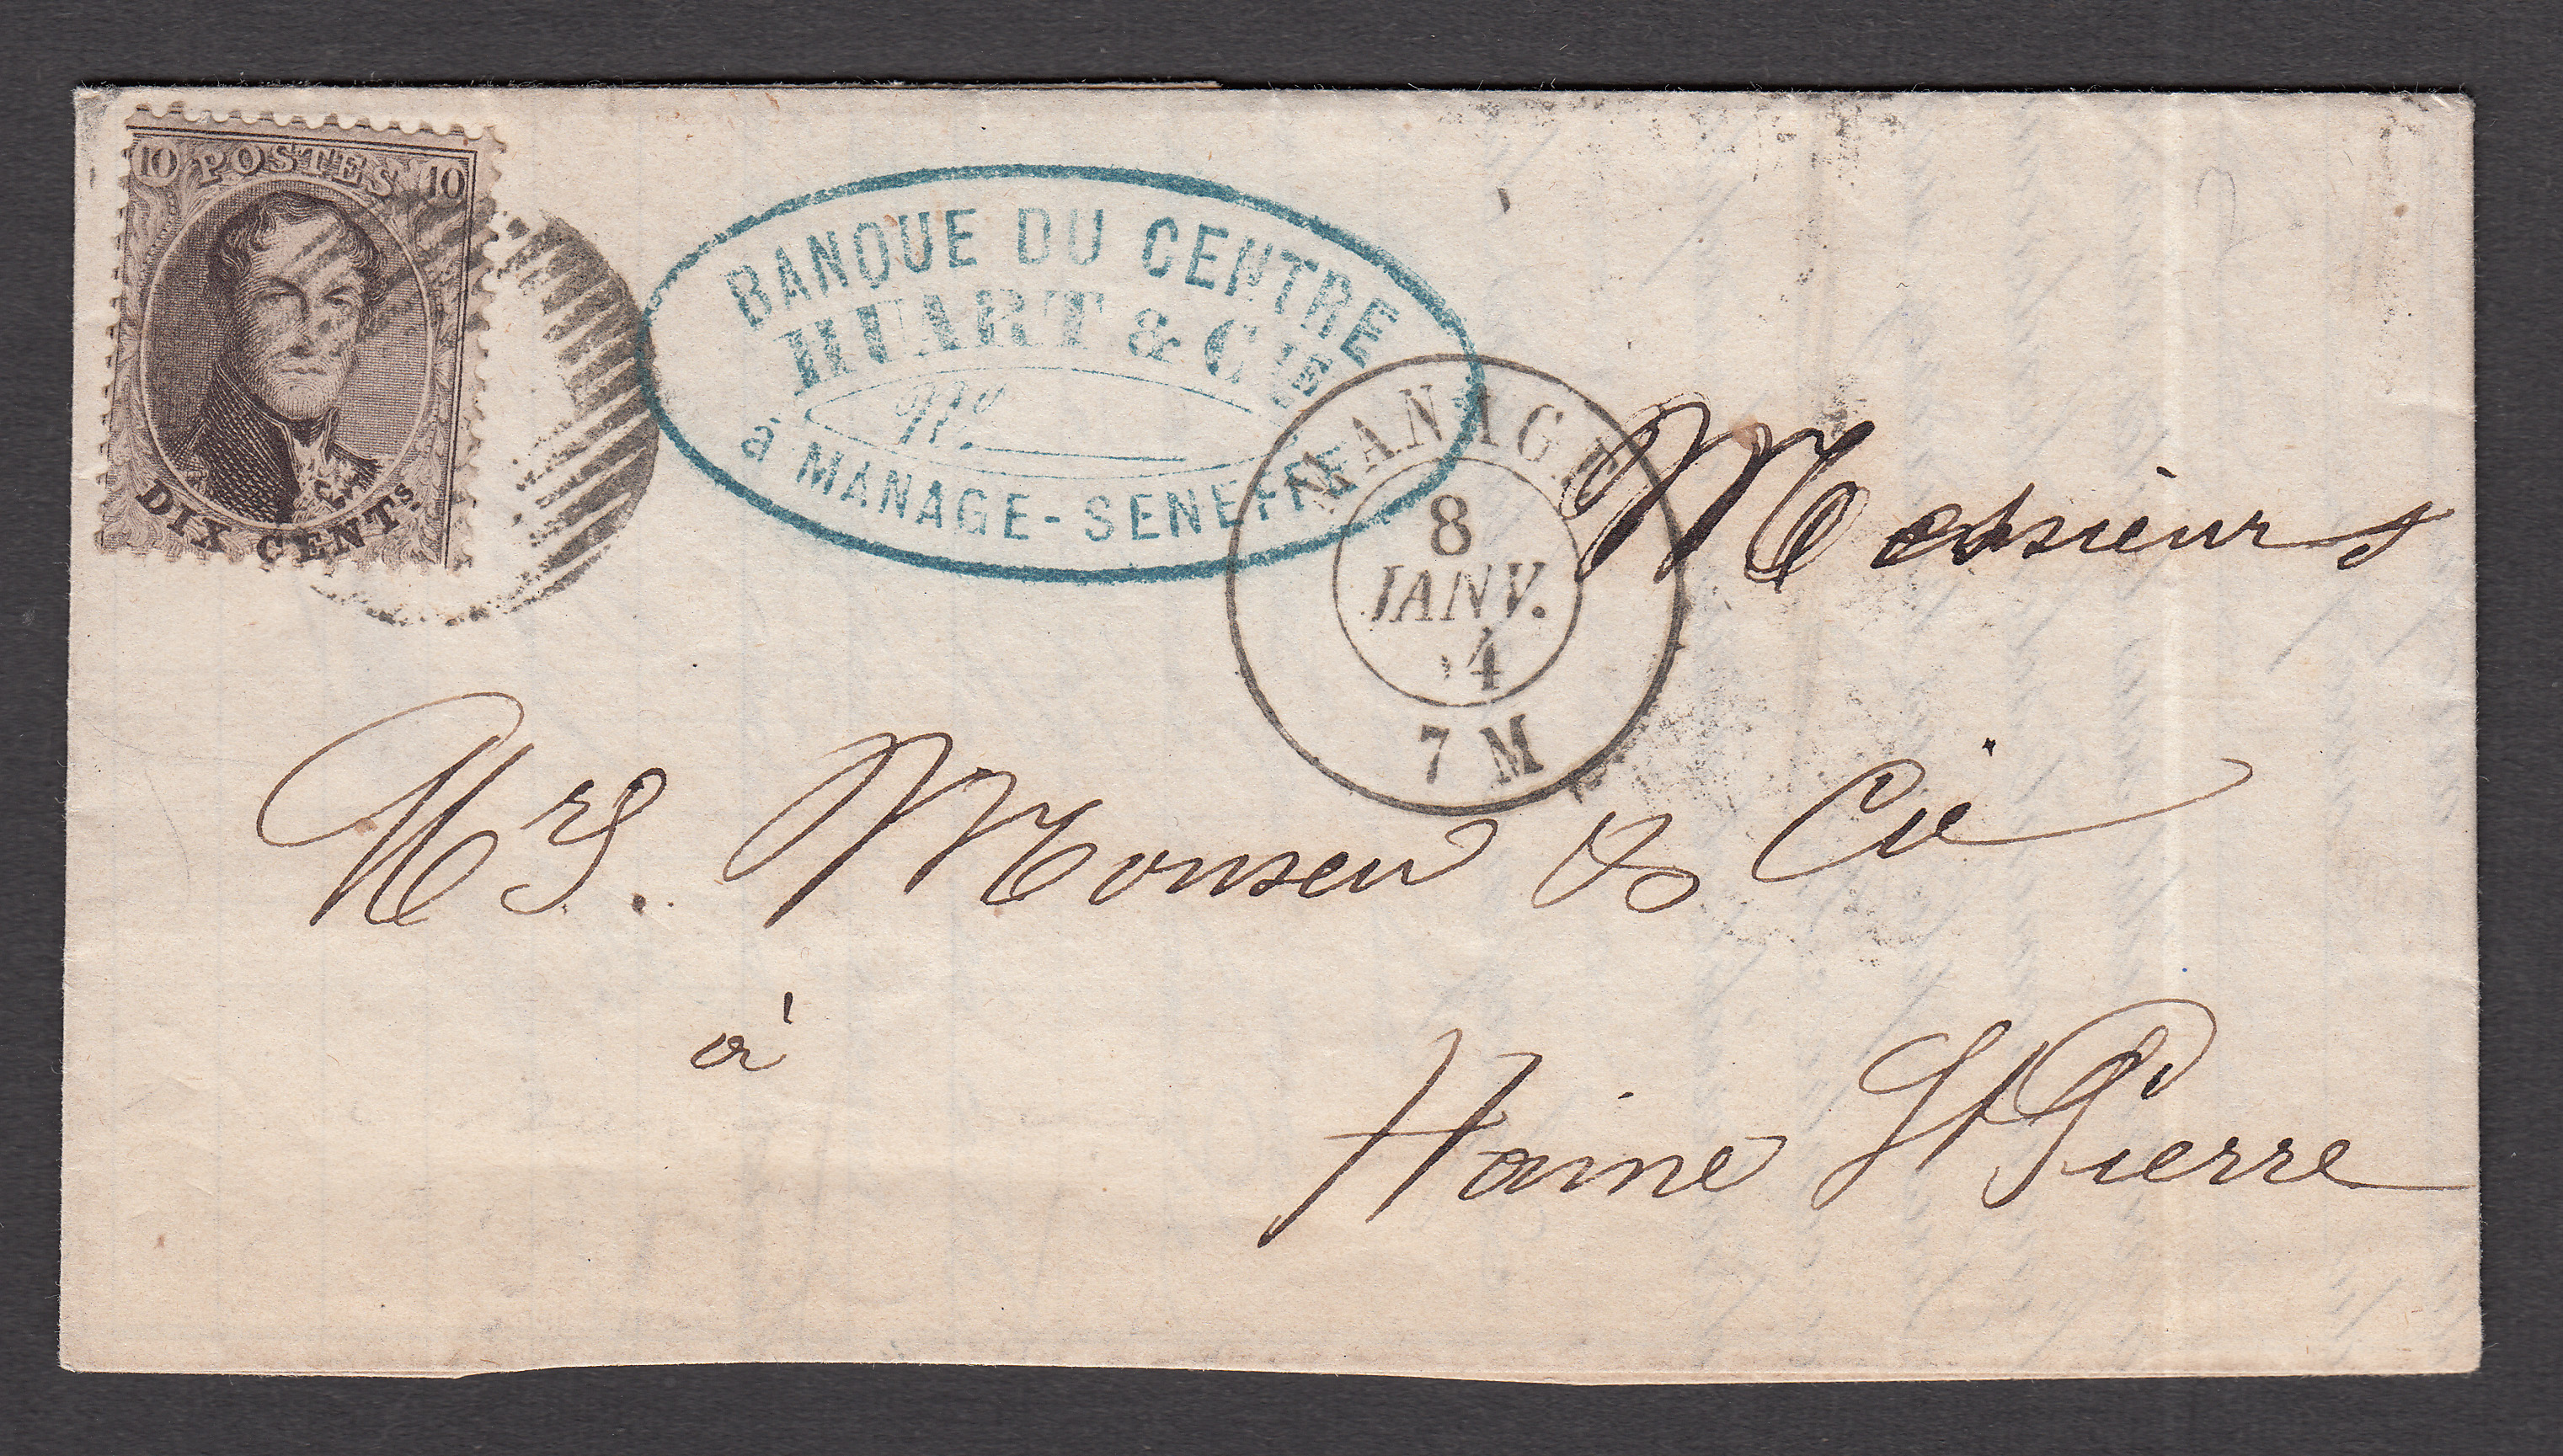 10 POSTES 10
DIX CENTS
BANQUE DU CENTRE
HUART & CIE
No.
à MANAGE-SENEFFE
MANAGE
8
JANV.
4
7 M
Messieurs
Mrs. Monseu & Cie
à
Haine St Pierre